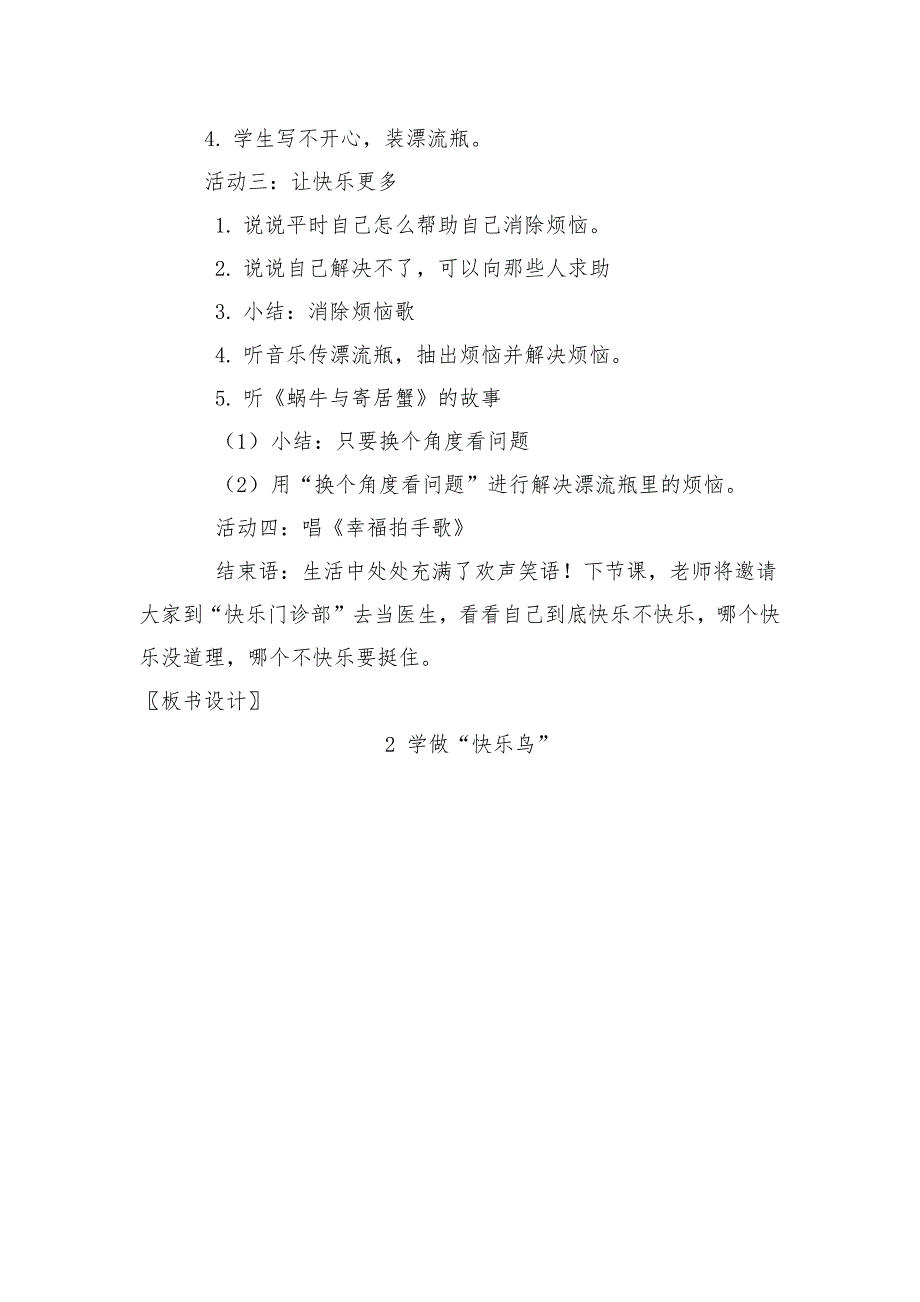 4. 学生写不开心，装漂流瓶。
活动三：让快乐更多
1. 说说平时自己怎么帮助自己消除烦恼。
2. 说说自己解决不了，可以向那些人求助
3. 小结：消除烦恼歌
4. 听音乐传漂流瓶，抽出烦恼并解决烦恼。
5. 听《蜗牛与寄居蟹》的故事
（1）小结：只要换个角度看问题
（2）用“换个角度看问题”进行解决漂流瓶里的烦恼。
活动四：唱《幸福拍手歌》
结束语：生活中处处充满了欢声笑语！下节课，老师将邀请
大家到“快乐门诊部”去当医生，看看自己到底快乐不快乐，哪个快
乐没道理，哪个不快乐要挺住。
〖板书设计〗
2 学做“快乐鸟”